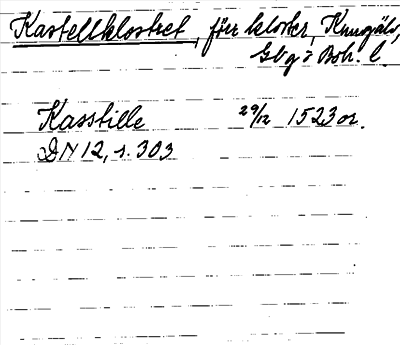 Kastellklostret, förr kloster, Kungälv,
Gbg o Boh. l.
Kasstille 29/12 1523 or.
DN 12, s. 303